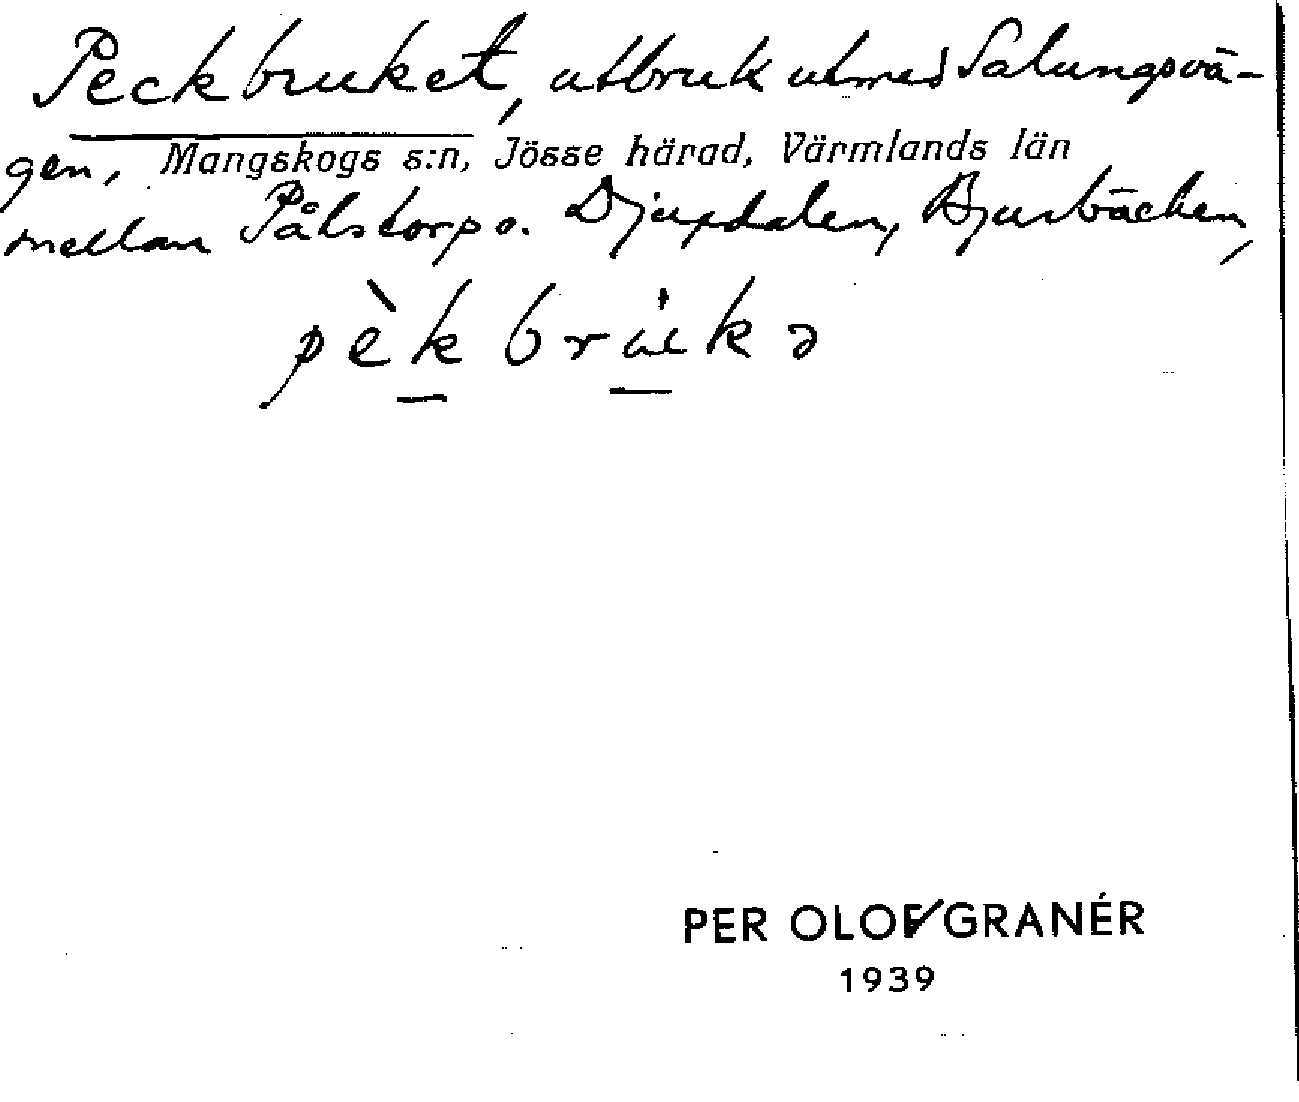 Peckbruket, utbruk utmed Salungsvä-
gen, Mangskogs s:n, Jösse härad, Värmlands län
mellan Pålstorp o. Djupdalen, Bjurbäcken,
pèkbru̇kə
PER OLOF GRANÉR
1939